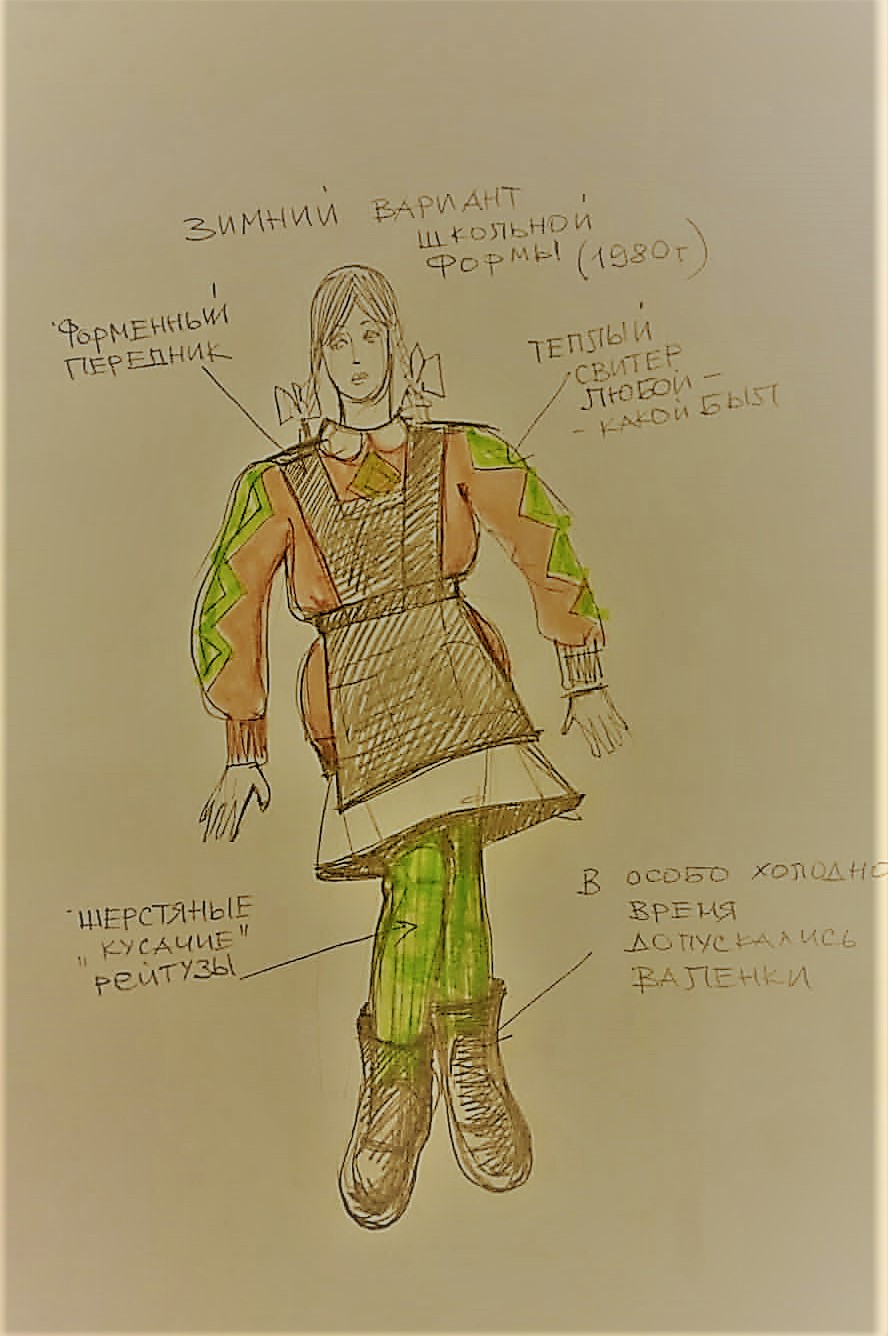 ЗИМНИЙ ВАРИАНТ
ШКОЛЬНОЙ
ФОРМЫ (1980г)
ФОРМЕННЫЙ
ПЕРЕДНИК
ТЕПЛЫЙ
СВИТЕР
ЛЮБОЙ –
– КАКОЙ БЫЛ
ШЕРСТЯНЫЕ
"КУСАЧИЕ"
РЕЙТУЗЫ
В ОСОБО ХОЛОДНО
ВРЕМЯ
ДОПУСКАЛИСЬ
ВАЛЕНКИ